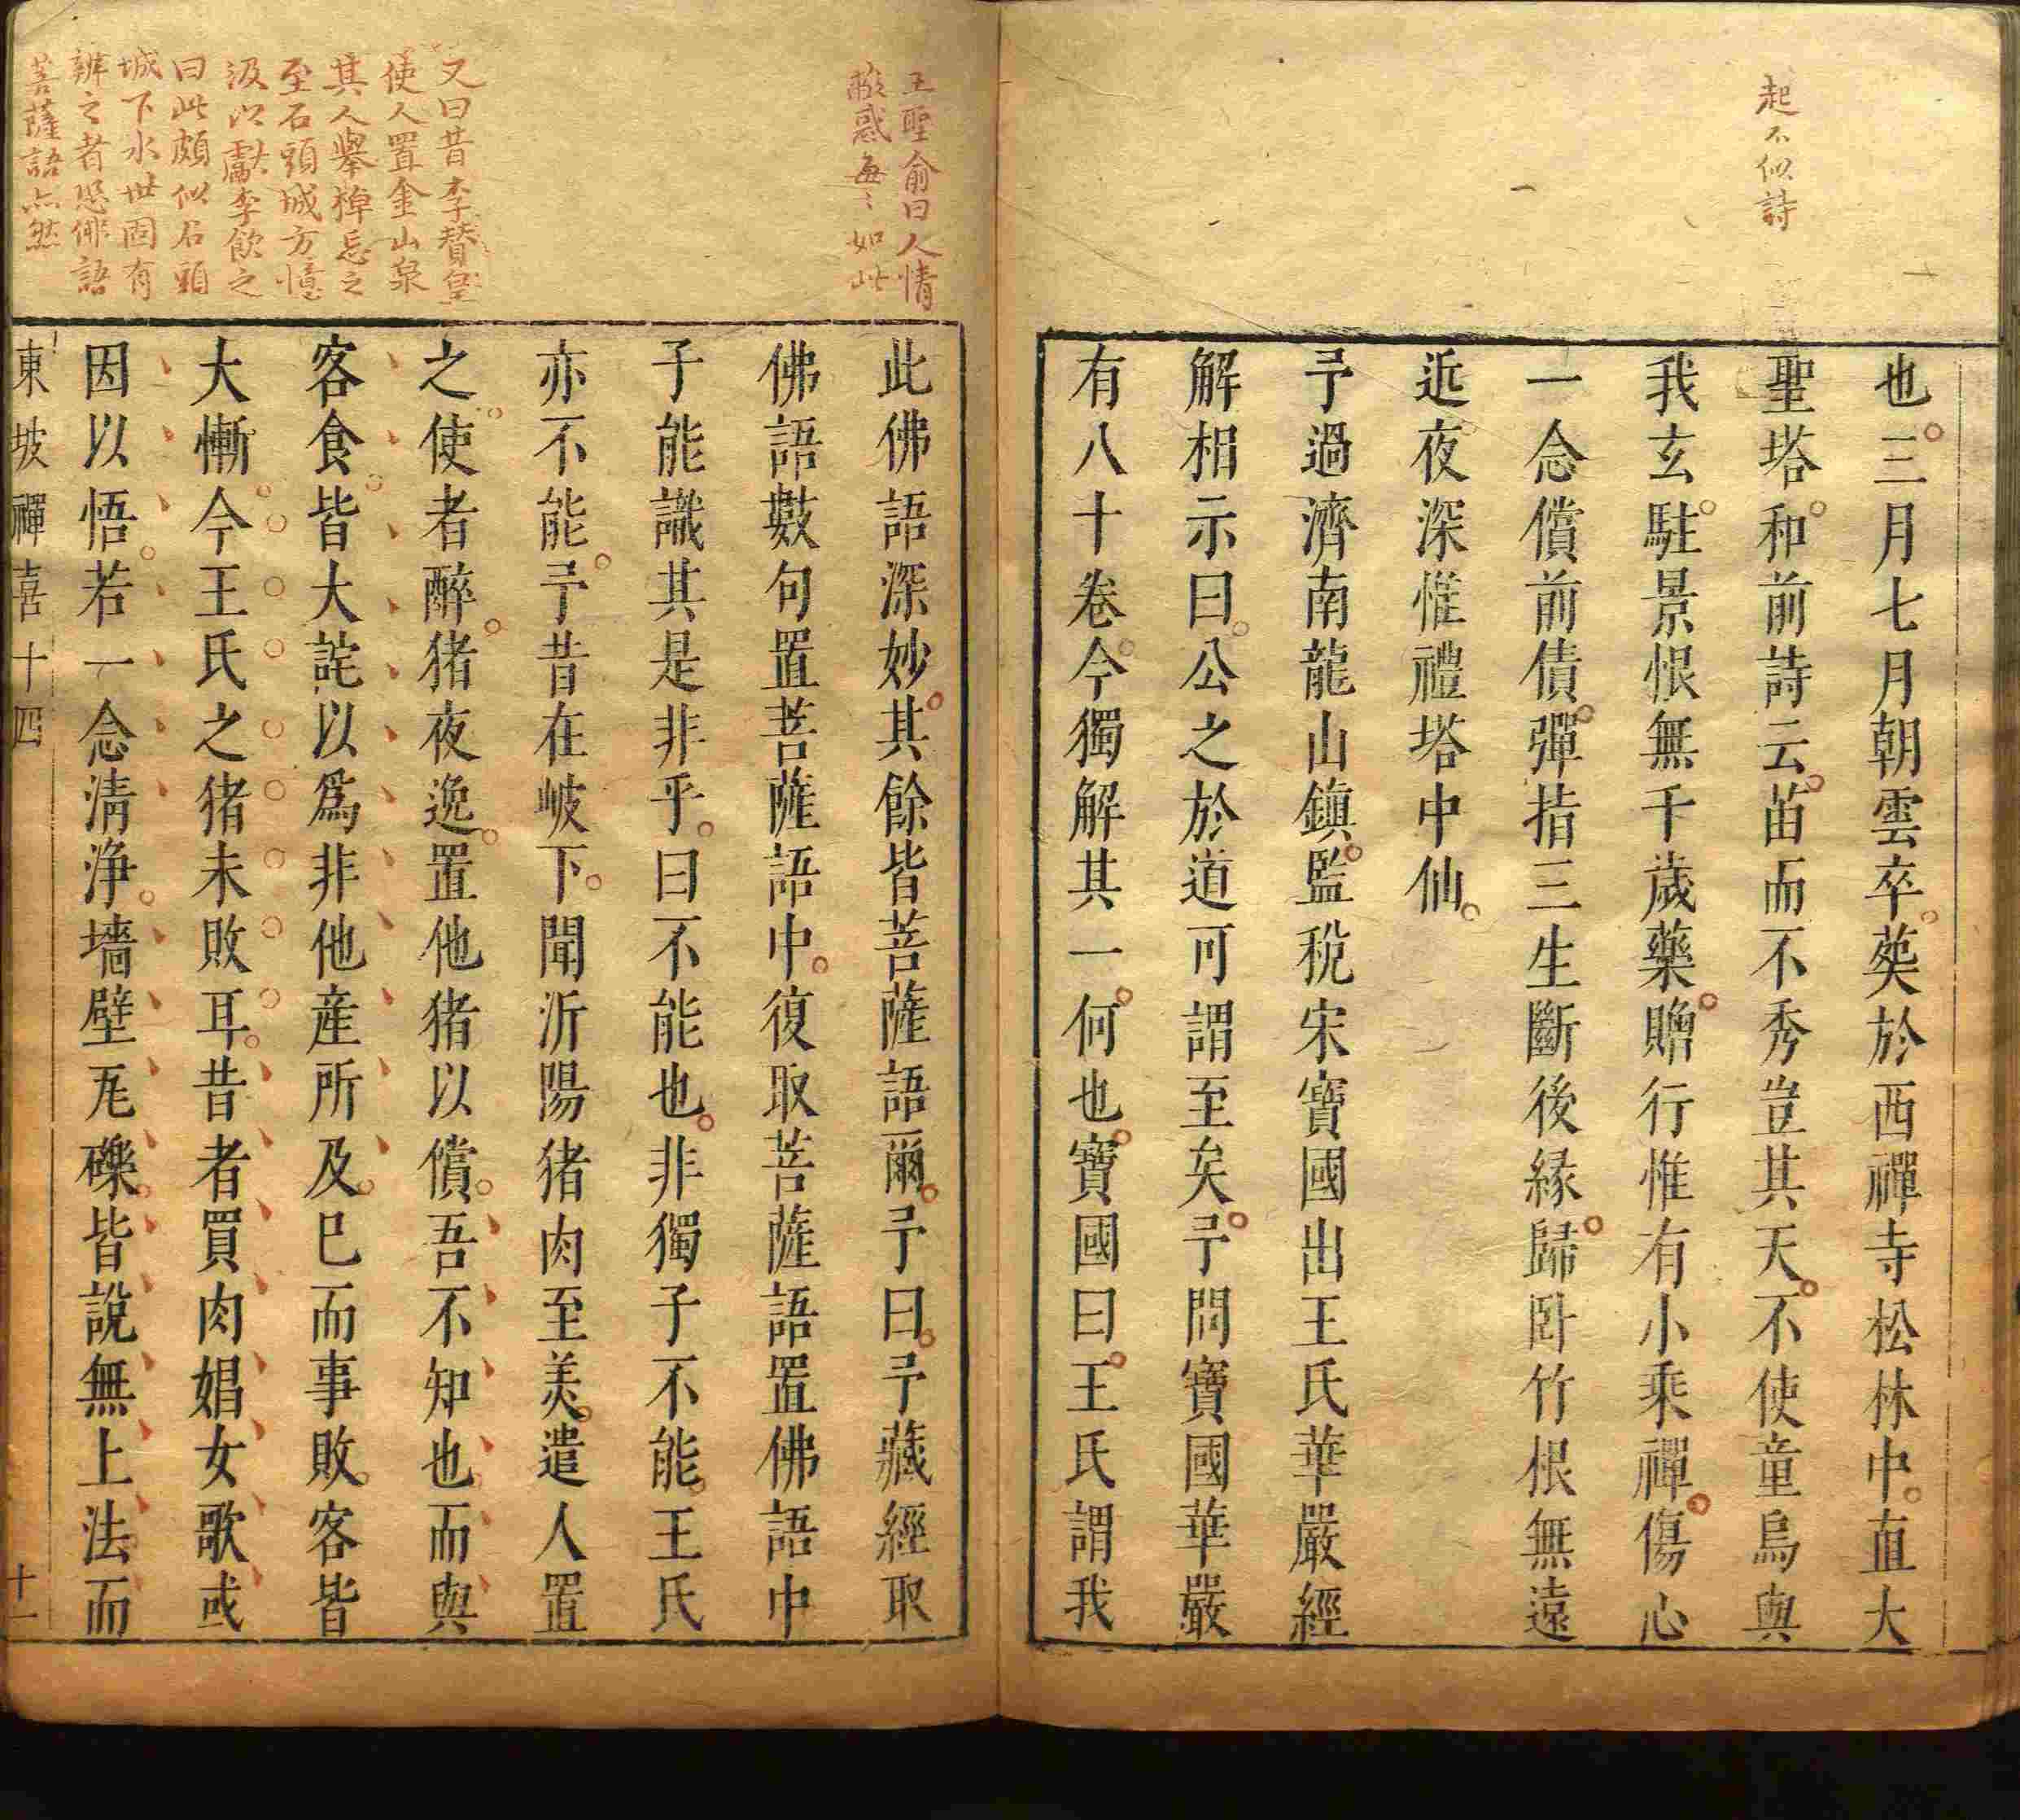 起不似詩
也三月七月朝雲卒葬於西禪寺松林中直大
聖塔和前詩云苗而不秀豈其天不使童烏與
我玄駐景恨無千歲藥贈行惟有小乘禪傷心
一念償前債彈指三生斷後緣歸臥竹根無遠
近夜深惟禮塔中仙
予過濟南龍山鎮監稅宋寶國出王氏華嚴經
解相示曰公之於道可謂至矣予問寶國華嚴
有八十卷今獨解其一何也寶國曰王氏謂我
王聖俞曰人情
癡惑每〻如此
又曰昔李贊皇
使人置金山泉
其人舉棹忘之
至石頭城方憶
汲以獻李飲之
曰此頗似石頭
城下水世固有
辨之者恐佛語
菩薩語亦然
此佛語深妙其餘皆菩薩語爾予曰予藏經取
佛語數句置菩薩語中復取菩薩語置佛語中
子能識其是非乎曰不能也非獨子不能王氏
亦不能予昔在岐下聞沂陽猪肉至美遣人置
之使者醉猪夜逸置他猪以償吾不知也而與
客食皆大詫以爲非他産所及已而事敗客皆
大慚今王氏之猪未敗耳昔者買肉娼女歌或
因以悟若一念清淨墻壁瓦礫皆說無上法而
東坡禪喜十四
十一